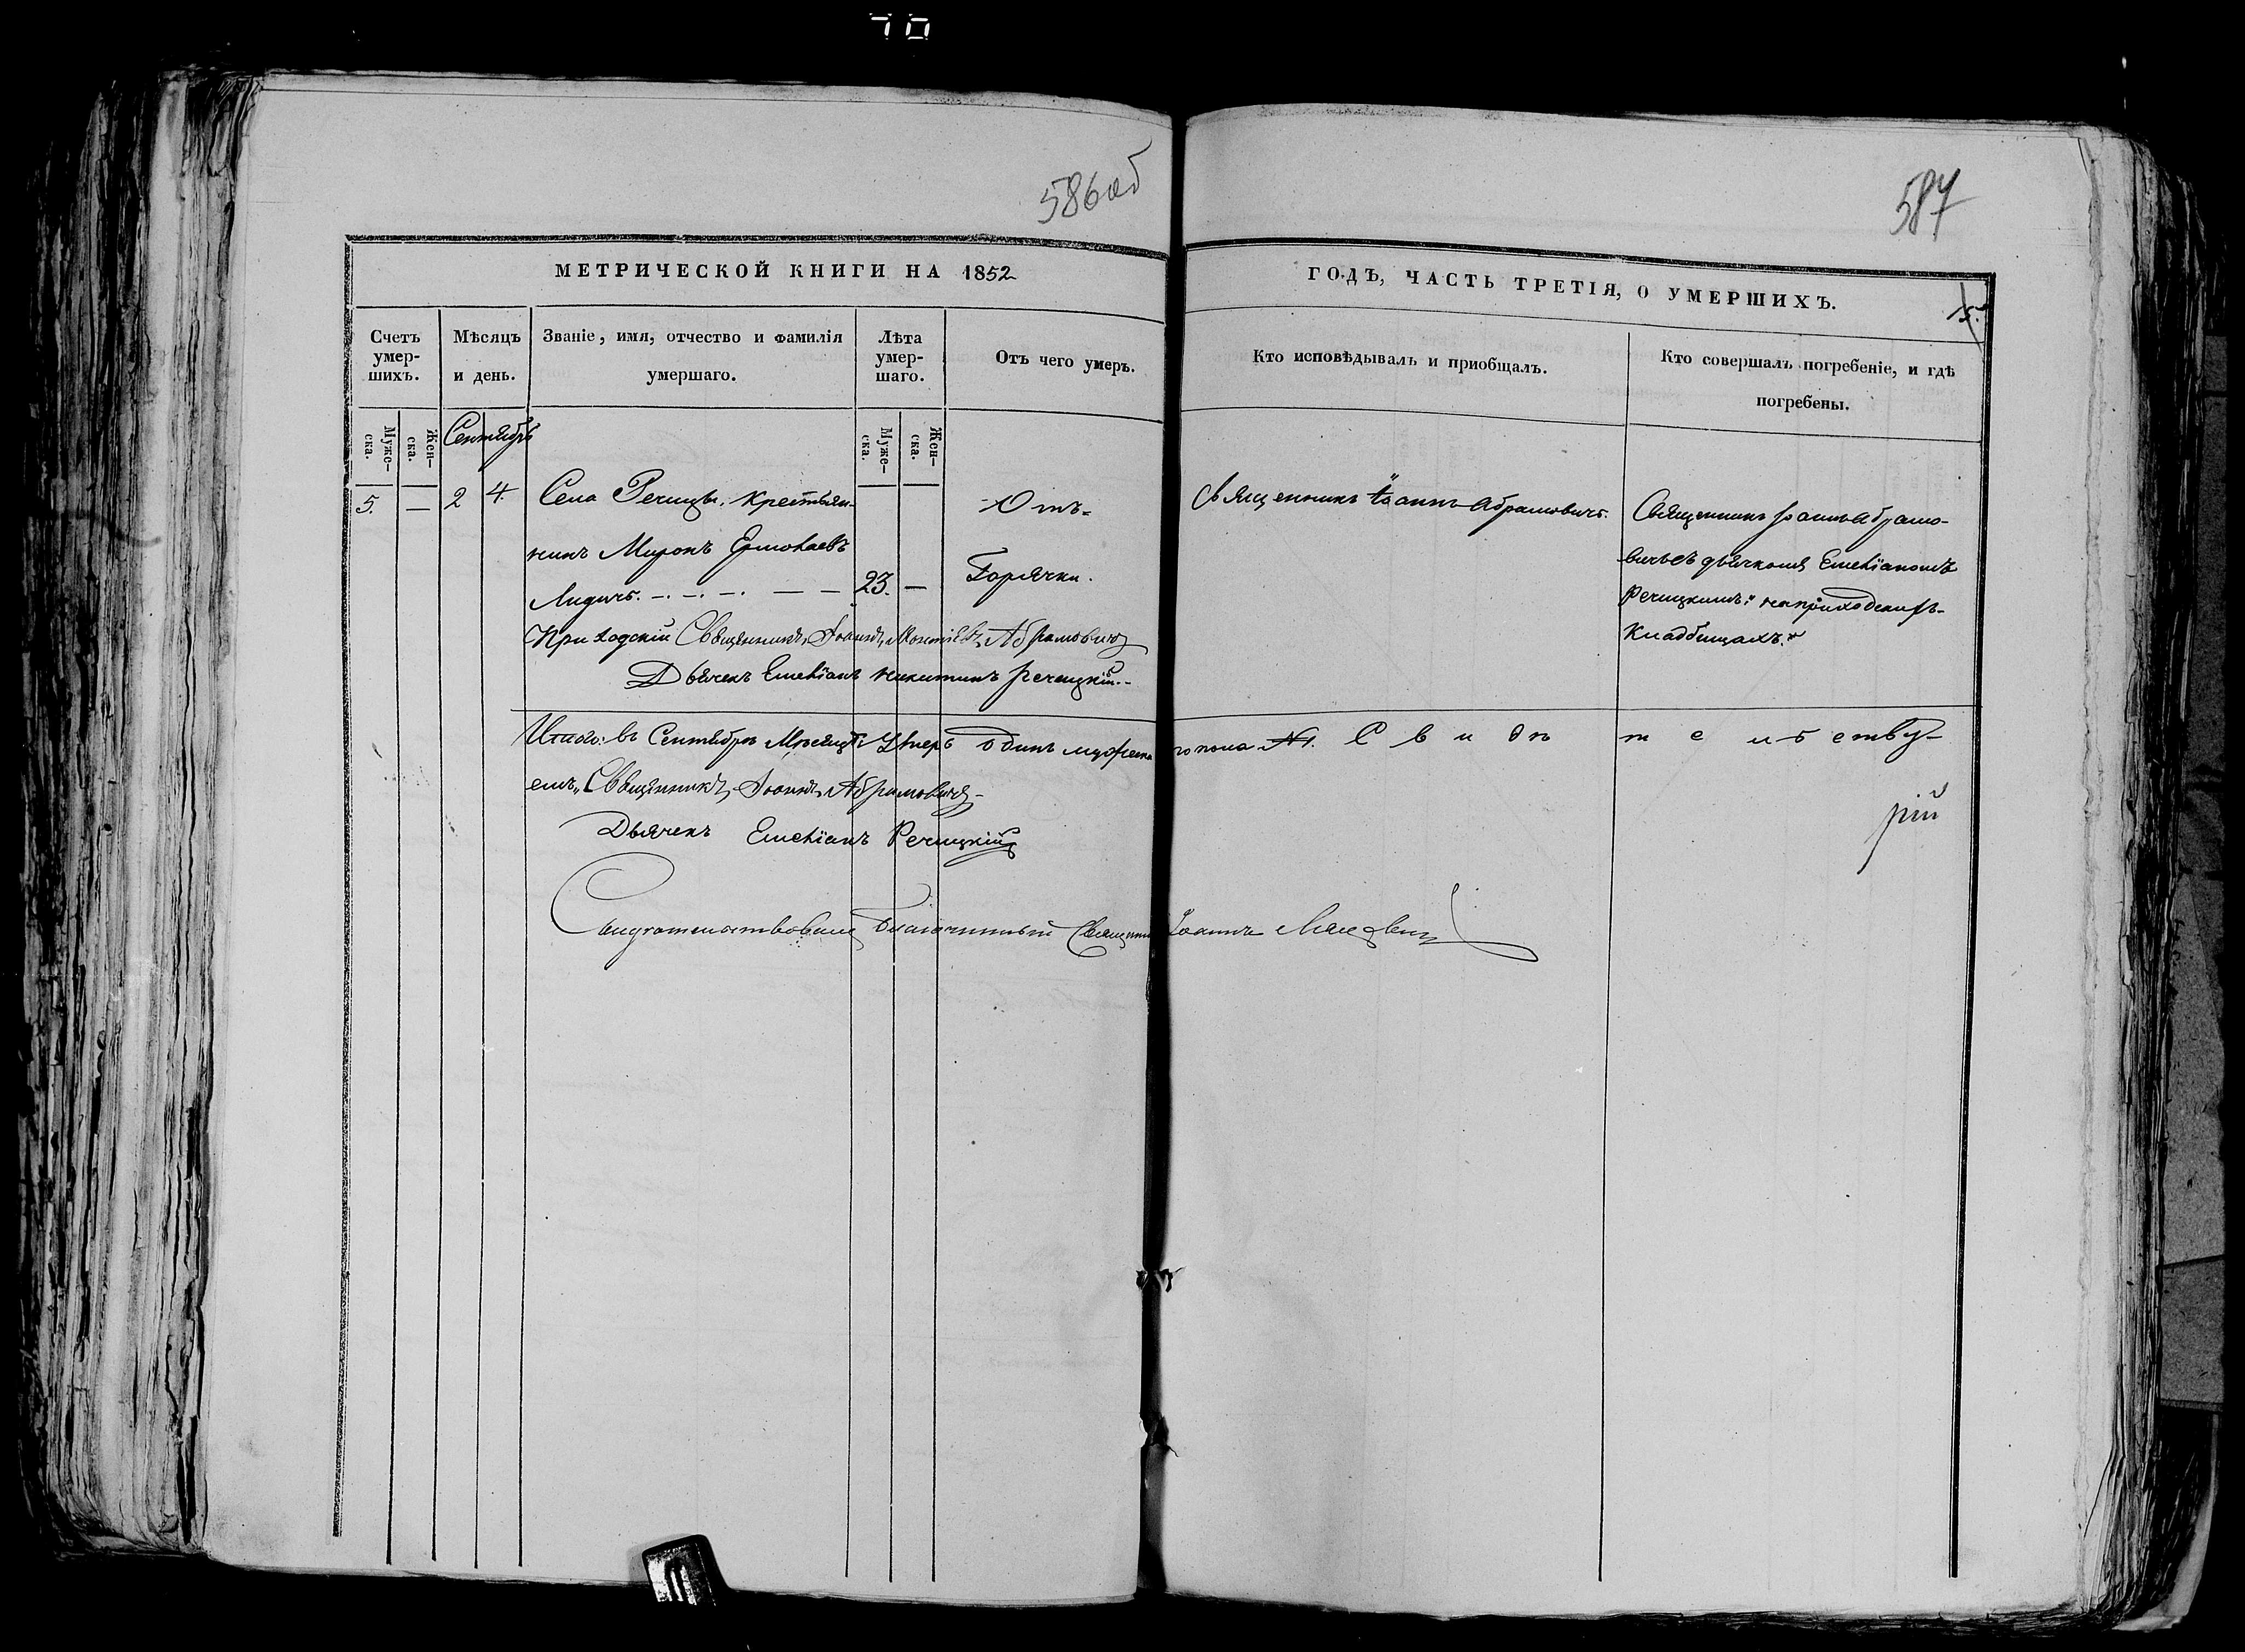 70
586об
587
МЕТРИЧЕСКОЙ КНИГИ НА 1852
ГОДЪ, ЧАСТЬ ТРЕТІЯ, О УМЕРШИХЪ.
15.
Счетъ умер-шихъ.
Мѣсяцъ и день.
Званіе, имя, отчество и фамилія умершаго.
Лѣта умер-шаго.
Отъ чего умеръ.
Кто исповѣдывалъ и приобщалъ.
Кто совершалъ погребеніе, и гдѣ погребены.
Муже-ска.
Жен-ска.
Сентябрь
Муже-ска.
Жен-ска.
5. — 2 4. Села Речицы, крестьян-
нинъ Миронъ Ермолаевъ
Лидичъ. — 23. —
Отъ
Горячки.
Священникъ Іоаннъ Абрамовичъ.
Священникъ Іоаннъ Абрамо-
вичъ съ дьячкомъ Емеліаномъ
Речицкимъ: на приходскихъ
Кладбищахъ.
Приходскій Священникъ Іоаннъ Абрамовичъ
Дьячекъ Емеліанъ Никитинъ Речицкій.
Итого: въ Сентябрѣ Мѣсяцѣ Умеръ одинъ мужеска го пола №1. С в и д ѣ т е л ь с тву-
емъ, Священникъ, Іоаннъ Абрамовичъ
рій
Дьячекъ Емеліанъ Речицкій
Свидѣтельствовалъ Благочинный Священникъ Іоаннъ